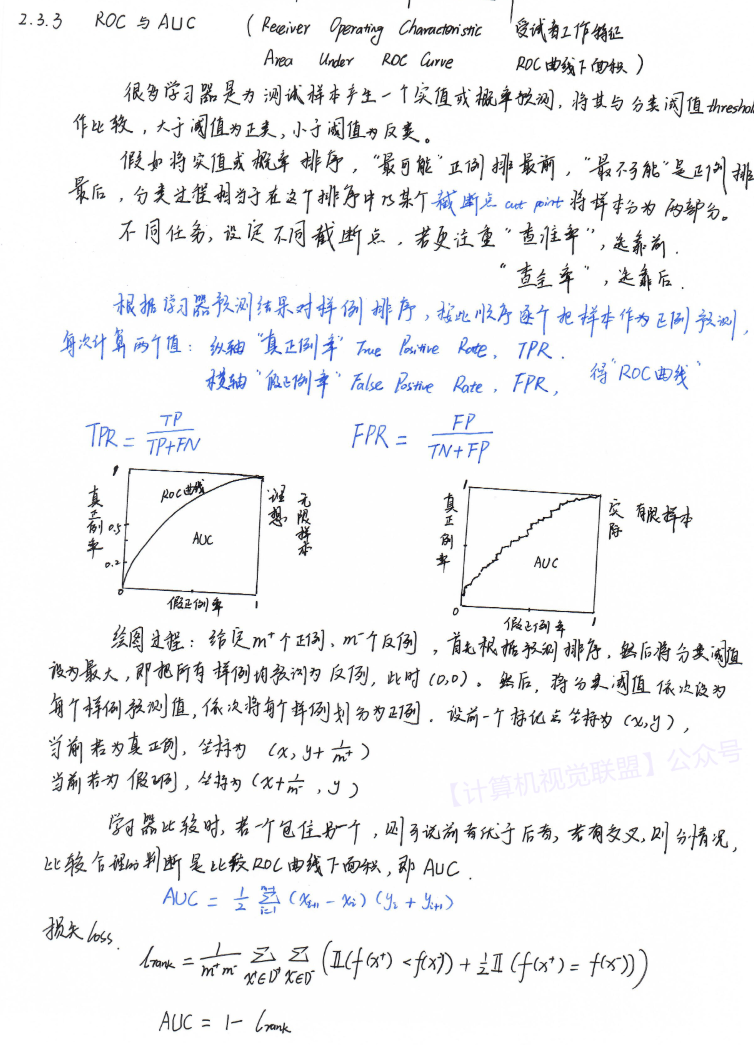 2.3.3 ROC 与 AUC (Receiver Operating Characteristic 受试者工作特征
Area Under ROC Curve ROC曲线下面积)
很多学习器是为测试样本产生一个实值或概率预测,将其与分类阈值threshol
作比较,大于阈值为正类,小于阈值为反类。
假如将实值或概率排序,“最可能”正例排最前,“最不可能”是正例排
最后,分类过程相当于在这个排序中以某个截断点cut point将样本分为两部分。
不同任务,设定不同截断点,若更注重“查准率”,选靠前.
“查全率”,选靠后.
根据学习器预测结果对样例排序,按此顺序逐个把样本作为正例预测,
每次计算两个值:纵轴“真正例率”True Positive Rate, TPR.
横轴“假正例率”False Postive Rate, FPR, 得“ROC曲线”
TPR = TP / TP+FN FPR = FP / TN+FP
1 ROC曲线 真正例率 0.5 0.2 AUC 0 假正例率 1 理想, 无限样本
1 真正例率 AUC 0 假正例率 1 实际 有限样本
绘图过程:给定m⁺个正例、m⁻个反例,首先根据预测排序,然后将分类阈值
设为最大,即把所有样例均预测为反例,此时(0,0)。然后,将分类阈值依次设为
每个样例预测值,依次将每个样例划分为正例.设前一个标记点坐标为(x,y),
当前若为真正例,坐标为 (x, y+1/m⁺)
当前若为假正例,坐标为(x+1/m⁻, y)
【计算机视觉联盟】公众号
学习器比较时,若一个包住另一个,则可说前者优于后者,若有交叉,则分情况,
比较合理的判断是比较ROC曲线下面积,即AUC.
AUC = 1/2 Σ_{i=1}^{m-1} (x_{i+1} - x_i)(y_i + y_{i+1})
损失loss.
ℓrank = 1/m⁺m⁻ Σ_{x⁺∈D⁺} Σ_{x⁻∈D⁻} (𝕀(f(x⁺) < f(x⁻)) + 1/2 𝕀(f(x⁺) = f(x⁻)))
AUC = 1- ℓrank